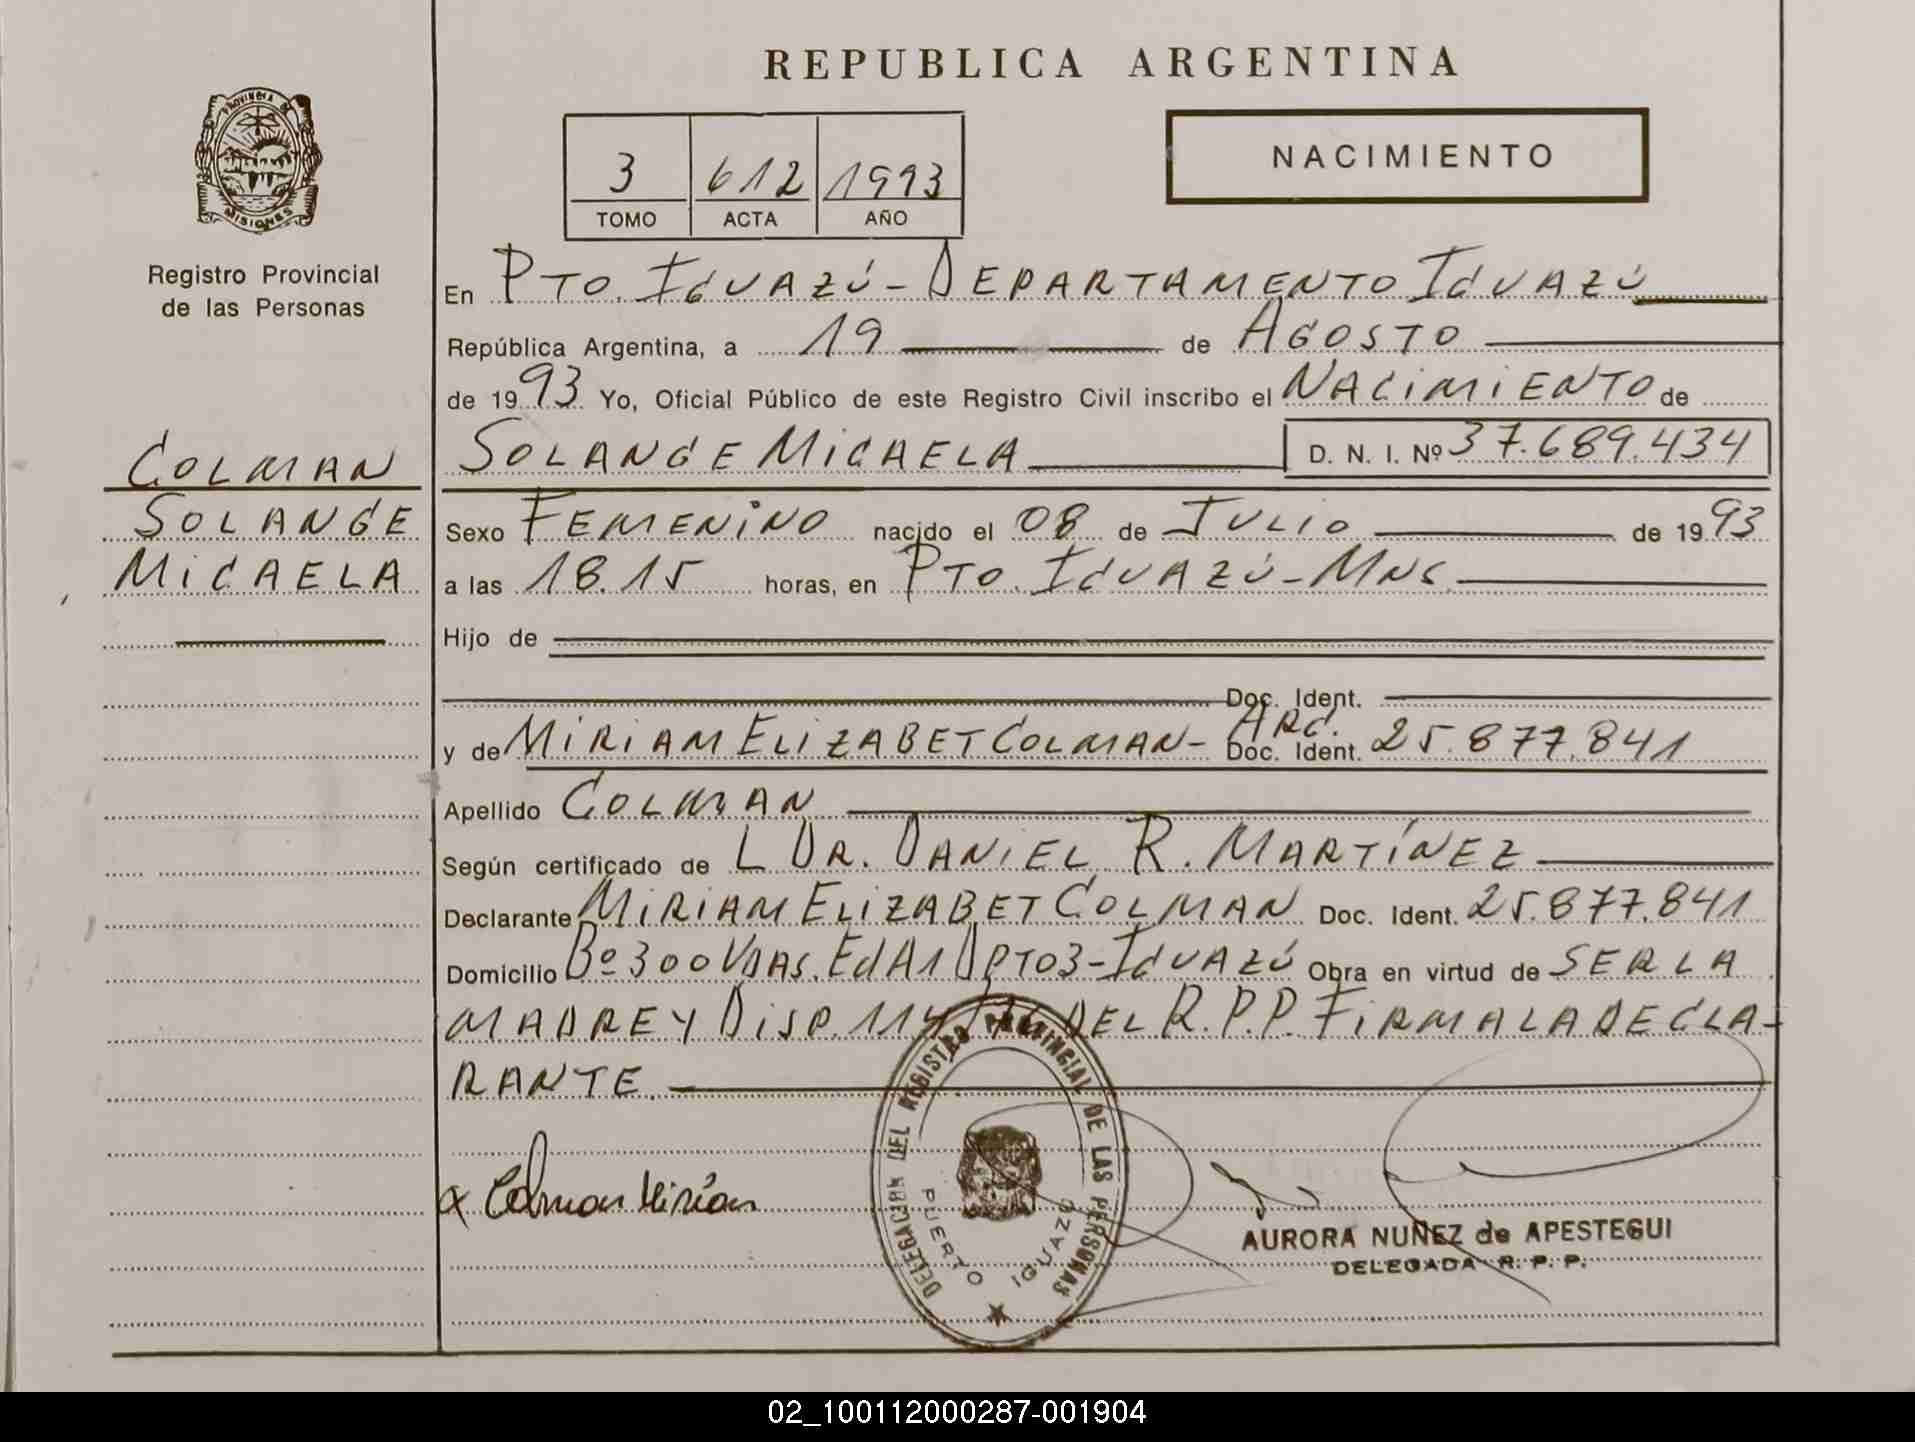 REPUBLICA ARGENTINA
PROVINCIA DE
MISIONES
Registro Provincial
de las Personas
3 612 1993
TOMO ACTA AÑO
NACIMIENTO
En PTO. IGUAZÚ - DEPARTAMENTO IGUAZÚ
República Argentina, a 19 de AGOSTO
de 1993 Yo, Oficial Público de este Registro Civil inscribo el NACIMIENTO de
SOLANGE MICAELA D. N. I. Nº 37.689.434
COLMAN
SOLANGE
MICAELA
Sexo FEMENINO nacido el 08 de JULIO de 1993
a las 18.15 horas, en PTO. IGUAZÚ - MNS.
Hijo de
Doc. Ident.
y de MIRIAM ELIZABET COLMAN - ARG. Doc. Ident. 25.877.841
Apellido COLMAN
Según certificado de L DR. DANIEL R. MARTÍNEZ
Declarante MIRIAM ELIZABET COLMAN Doc. Ident. 25.877.841
Domicilio Bº 300 VDAS. Ed A1 DPTO 3 - IGUAZÚ Obra en virtud de SER LA
MADRE Y DISP. DEL R.P.P. FIRMA LA DECLA-
RANTE.
x Colman Mirian
DELEGACION DEL REGISTRO PROVINCIAL DE LAS PERSONAS
PUERTO IGUAZU
AURORA NUÑEZ de APESTEGUI
DELEGADA R. P. P.
02_100112000287-001904